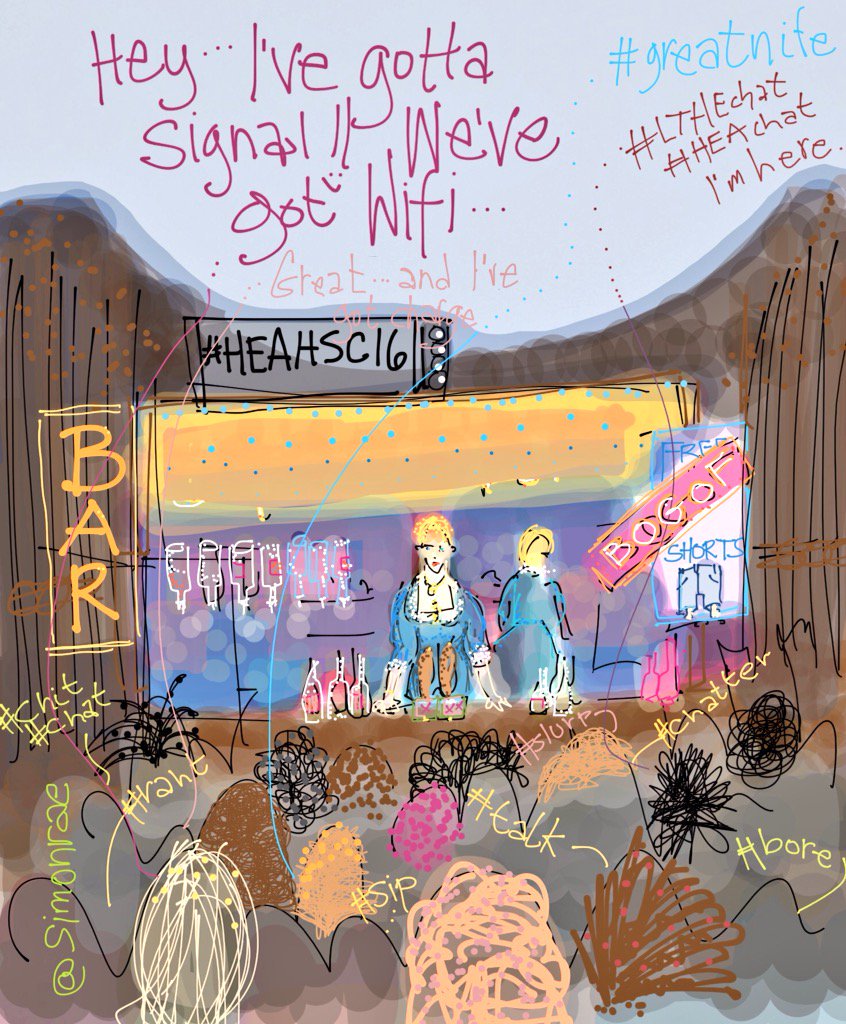 Hey... I've gotta
signal!! We've
got Wifi...
#greatnife
#LTHEchat
#HEAchat
I'm here.
Great... and I've
got charge
#HEAHSC16
BAR
FREE
BOGOF
SHORTS
#chit
#chat
#rant
#slurp
#chatter
#talk
#bore
#sip
@simonrae